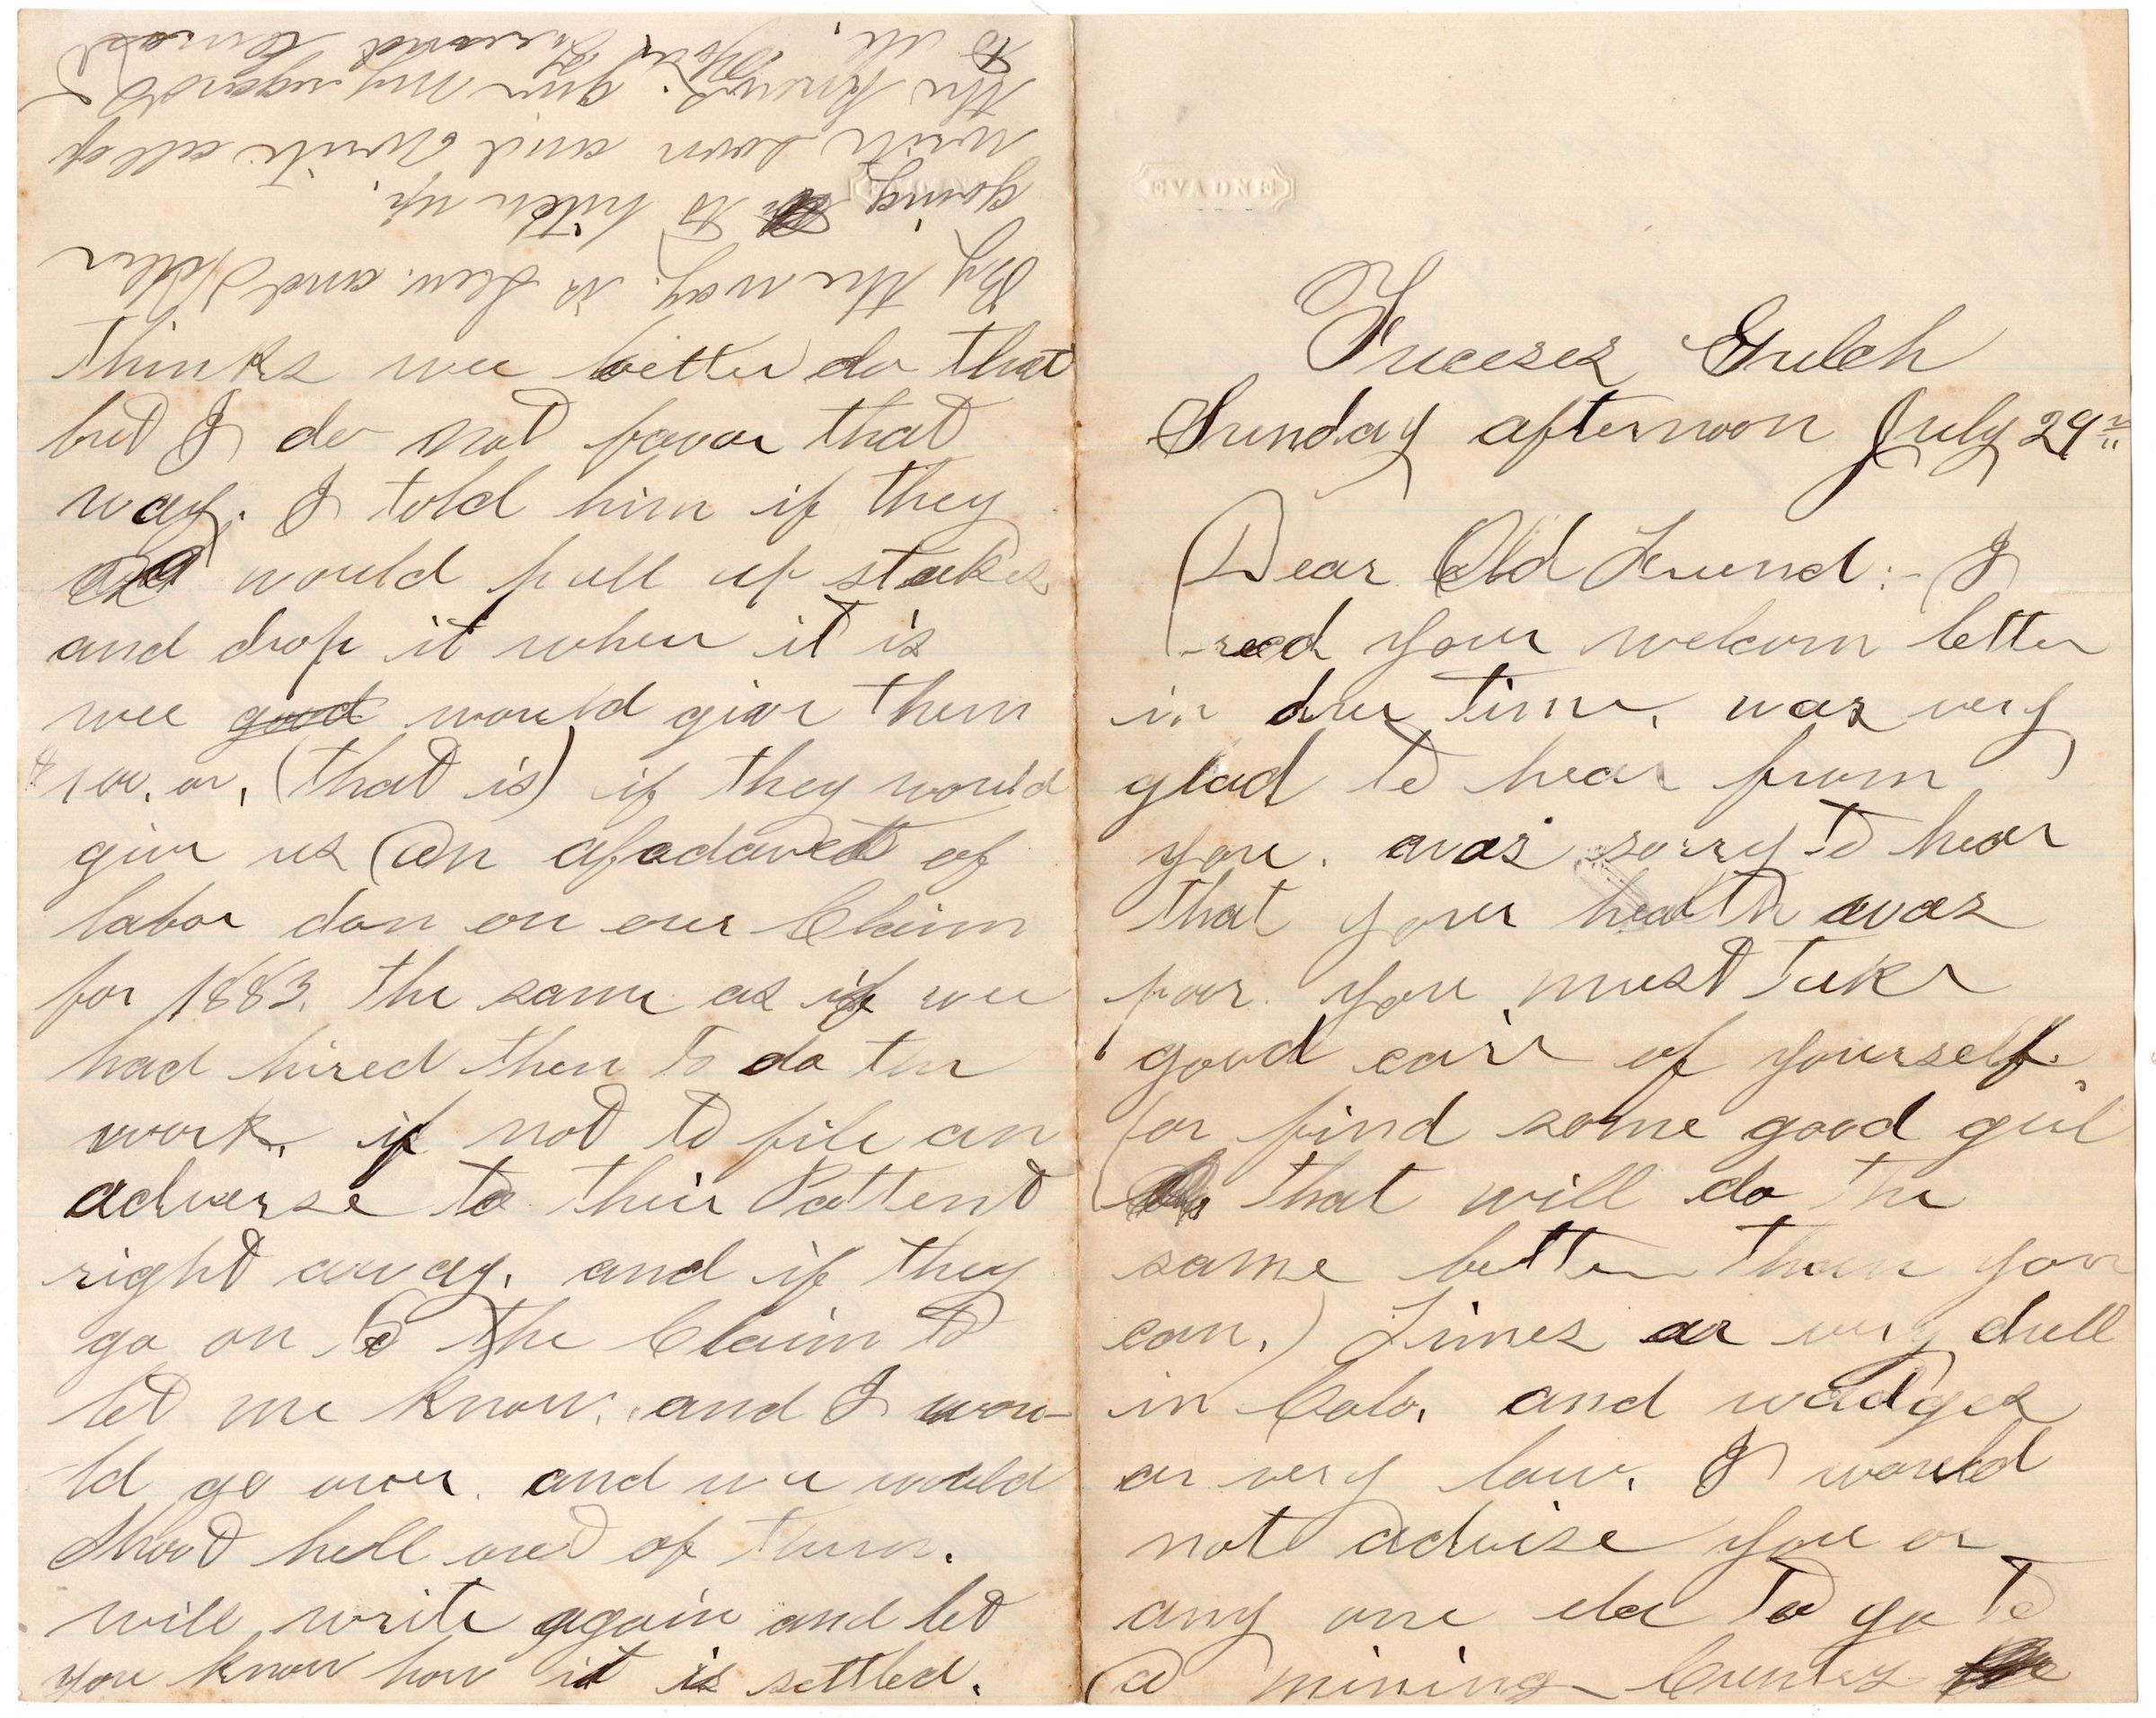 EVADNE
Frecses Gulch
Sunday afternoon July 29th
Dear Old Freund:- I
recd your welcom letter
in due time, was very
glad to hear from
you. was sorry to hear
that your health was
poor. you must take
good cair of yourself.
(or find some good girl
that will do the
same better than you
can.) Times ar very dull
in Colo. and wadges
ar very low. I would
not advise you or
any one else to go to
a mining Cuntry
thinks wee better do that
but I do not favor that
way. I told him if they
would pull up stakes
and drop it wher it is
wee good would give them
$100.00, (that is) if they would
give us an afadavet of
labor don on our Claim
for 1883. the same as if wee
had hired them to do the
work. if not to file an
adverse to their Pattent
right away. and if they
go on to the Claim to
let me know. and I wou-
ld go over. and we would
shoot hell out of them.
will write again and let
you know how it is settled.
By the way. is Lew. and Hellen
going to hitch up.
write soon and write all of
the knews. give my regards
to all. Your Freund